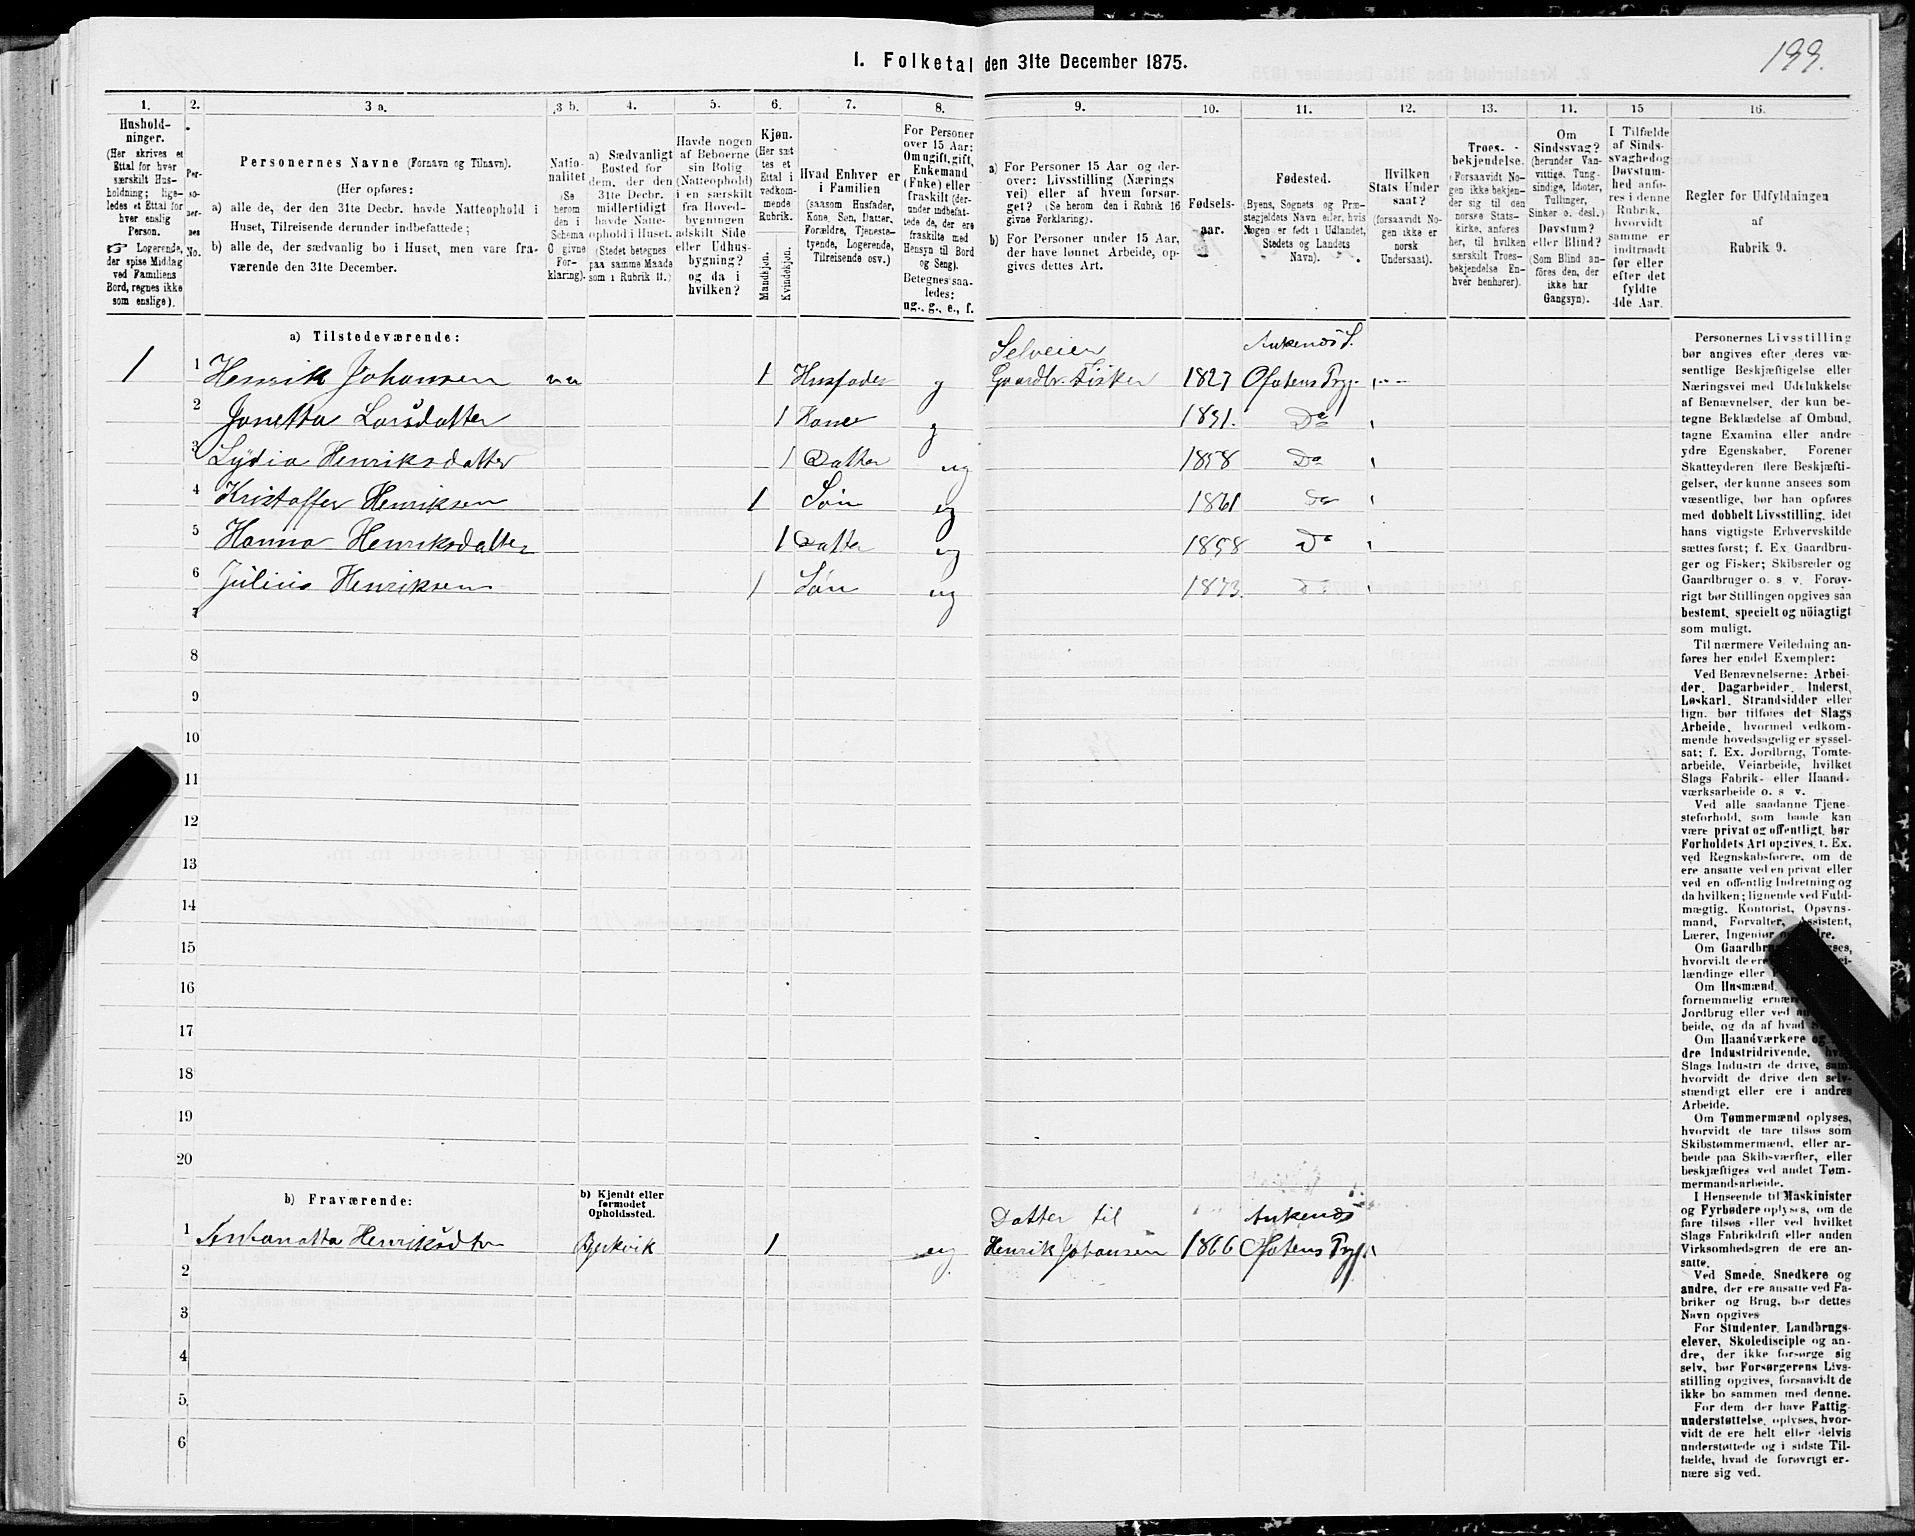 199.
I. Folketal den 31te December 1875.
1. 2. 3 a. 3 b. 4. 5. 6. 7. 8. 9. 10. 11. 12. 13. 14. 15 16.
Hushold-
ninger.
(Her skrives et
Ettal for hver
særskilt Hus-
holdning; lige-
ledes et Ettal for
hver enslig
Person.
☞ Logerende,
der spise Middag
ved Familiens
Bord, regnes ikke
som enslige).
Per-
so-
ner-
nes
No.
Personernes Navne (Fornavn og Tilnavn).
(Her opføres:
a) alle de, der den 31te Decbr. havde Natteophold i
Huset, Tilreisende derunder indbefattede;
b) alle de, der sædvanlig bo i Huset, men vare fra-
værende den 31te December.
Natio-
nalitet
(Se
herom
den i
Schema
C givne
For-
klaring).
a) Sædvanligt
Bosted for
dem, der den
31te Decbr.
midlertidigt
havde Natte-
ophold i Huset.
(Stedet betegnes
paa samme Maade
som i Rubrik 11.)
Havde nogen
af Beboerne
sin Bolig
(Natteophold)
i en særskilt
fra Hoved-
bygningen
adskilt Side
eller Udhus-
bygning?
og da i
hvilken?
Kjøn.
(Her sæt
tes et
Ettal i
vedkom-
mende
Rubrik.
Mandkjøn.
Kvindekjøn.
Hvad Enhver er
i Familien
(saasom Husfader,
Kone, Søn, Datter,
Forældre, Tjeneste-
tyende, Logerende,
Tilreisende osv.)
For Personer
over 15 Aar:
Om ugift, gift,
Enkemand
(Enke) eller
fraskilt (der-
under indbefat-
tede de, der ere
fraskilte med
Hensyn til Bord
og Seng).
Betegnes saa-
ledes:
ug., g., e., f.
a) For Personer 15 Aar og der-
over: Livsstilling (Nærings
vei) eller af hvem forsør-
get? (Se herom den i Rubrik 16
givne Forklaring).
b) For Personer under 15 Aar,
der have lønnet Arbeide, op-
gives dettes Art.
Fødsels-
aar.
Fødested.
(Byens, Sognets og Præ-
stegjeldets Navn eller, hvis
Nogen er født i Udlandet,
Stedets og Landets
Navn).
Hvilken
Stats Under
saat?
(forsaavidt No-
gen ikke er
norsk
Undersaat).
Troes-
bekjendelse.
(Forsaavidt No-
gen ikke bekjen-
der sig til den
norske Stats-
kirke, anføres
her, til hvilken
særskilt Troes-
bekjendelse En-
hver henhører).
Om
Sindssvag?
(herunder Van-
vittige, Tung-
sindige, Idioter,
Tullinger,
Sinker o. desl.)
Døvstum?
eller Blind?
(Som Blind an-
føres den, der
ikke har
Gangsyn).
I Tilfælde
af Sinds-
svaghed og
Døvstum-
hed anfø-
res i denne
Rubrik,
hvorvidt
samme er
indtraadt
før eller
efter det
fyldte
4de Aar.
Regler for Udfyldningen
af
Rubrik 9.
a) Tilstedeværende:
Selveier Ankenæs S.
1 1 Henrik Johansen nn 1 Husfader g Gaardbr. Fisker 1827 Ofotens Prgj.
2 Janetta Larsdatter 1 Kone g 1831. Do
3 Lydia Henriksdatter 1 Datter ug 1858 Do
4 Kristoffer Henriksen 1 Søn ug 1861 Do
5 Hanna Henriksdatter 1 Datter ug 1858 Do
6 Julius Henriksen 1 Søn ug 1873. Do
7
8
9
10
11
12
13
14
15
16
17
18
19
20
b) Fraværende:
b) Kjendt eller
formodet
Opholdssted.
Datter til Ankenæs
1 Antonetta Henriksdtr Bjerkvik 1 ug Henrik Johansen 1866 Ofotens Prgj.
2
3
4
5
6
Personernes Livsstilling
bør angives efter deres væ-
sentlige Beskjæftigelse eller
Næringsvei med Udelukkelse
af Benævnelser, der kun be-
tegne Beklædelse af Ombud,
tagne Examina eller andre
ydre Egenskaber. Forener
Skatteyderen flere Beskjæfti-
gelser, der kunne ansees som
væsentlige, bør han opføres
med dobbelt Livsstilling, idet
hans vigtigste Erhvervskilde
sættes først; f. Ex. Gaardbru-
ger og Fisker; Skibsreder og
Gaardbruger o. s. v. Forøv-
rigt bør Stillingen opgives saa
bestemt, specielt og nöiagtigt
som muligt.
Til nærmere Veiledning an-
føres her endel Exempler:
Ved Benævnelserne: Arbei-
der, Dagarbeider, Inderst,
Løskarl, Strandsidder eller
lign. bør tilføies det Slags
Arbeide, hvormed vedkom-
mende hovedsagelig er syssel-
sat; f. Ex. Jordbrug, Tomte-
arbeide, Veiarbeide, hvilket
Slags Fabrik- eller Haand-
værksarbeide o. s. v.
Ved alle saadanne Tjene-
steforhold, som baade kan
være privat og offentligt, bør
Forholdets Art opgives, f. Ex.
ved Regnskabsførere, om de
ere ansatte ved en privat eller
ved en offentlig Indretning og
da hvilken; lignende ved Fuld-
mægtig, Kontorist, Opsyns-
mand, Forvalter, Assistent,
Lærer, Ingeniør
Om
hvorvidt de ere
lændinge eller
Om Husmænd,
fornemmelig
Jordbrug eller ved
beide, og da af hvad
Om Haandværkere og
dre Industridrivende,
Slags Industri de drive,
hvorvidt de drive den selv-
stændigt eller ere i andres
Arbeide.
Om Tømmermænd oplyses,
hvorvidt de fare tilsøs som
Skibstømmermænd, eller ar-
beide paa Skibsværfter, eller
beskjæftiges ved andet Tøm-
mermandsarbeide.
I Henseende til Maskinister
og Fyrbødere oplyses, om de
fare tilsøs eller ved hvilket
Slags Fabrikdrift eller anden
Virksomhedsgren de ere an-
satte.
Ved Smede, Snedkere og
andre, der ere ansatte ved Fa-
briker og Brug, bør dettes
Navn opgives
For Studenter, Landbrugs-
elever, Skoledisciple og an-
dre, der ikke forsørge sig
selv, bør Forsørgerens Livs-
stilling opgives, forsaavidt de
ikke bo sammen med denne.
For dem, der have Fattig-
understøttelse, oplyses, hvor-
vidt de ere helt eller delvis
understøttede og i sidste Til-
fælde, hvad de forøvrigt er-
nære sig ved.